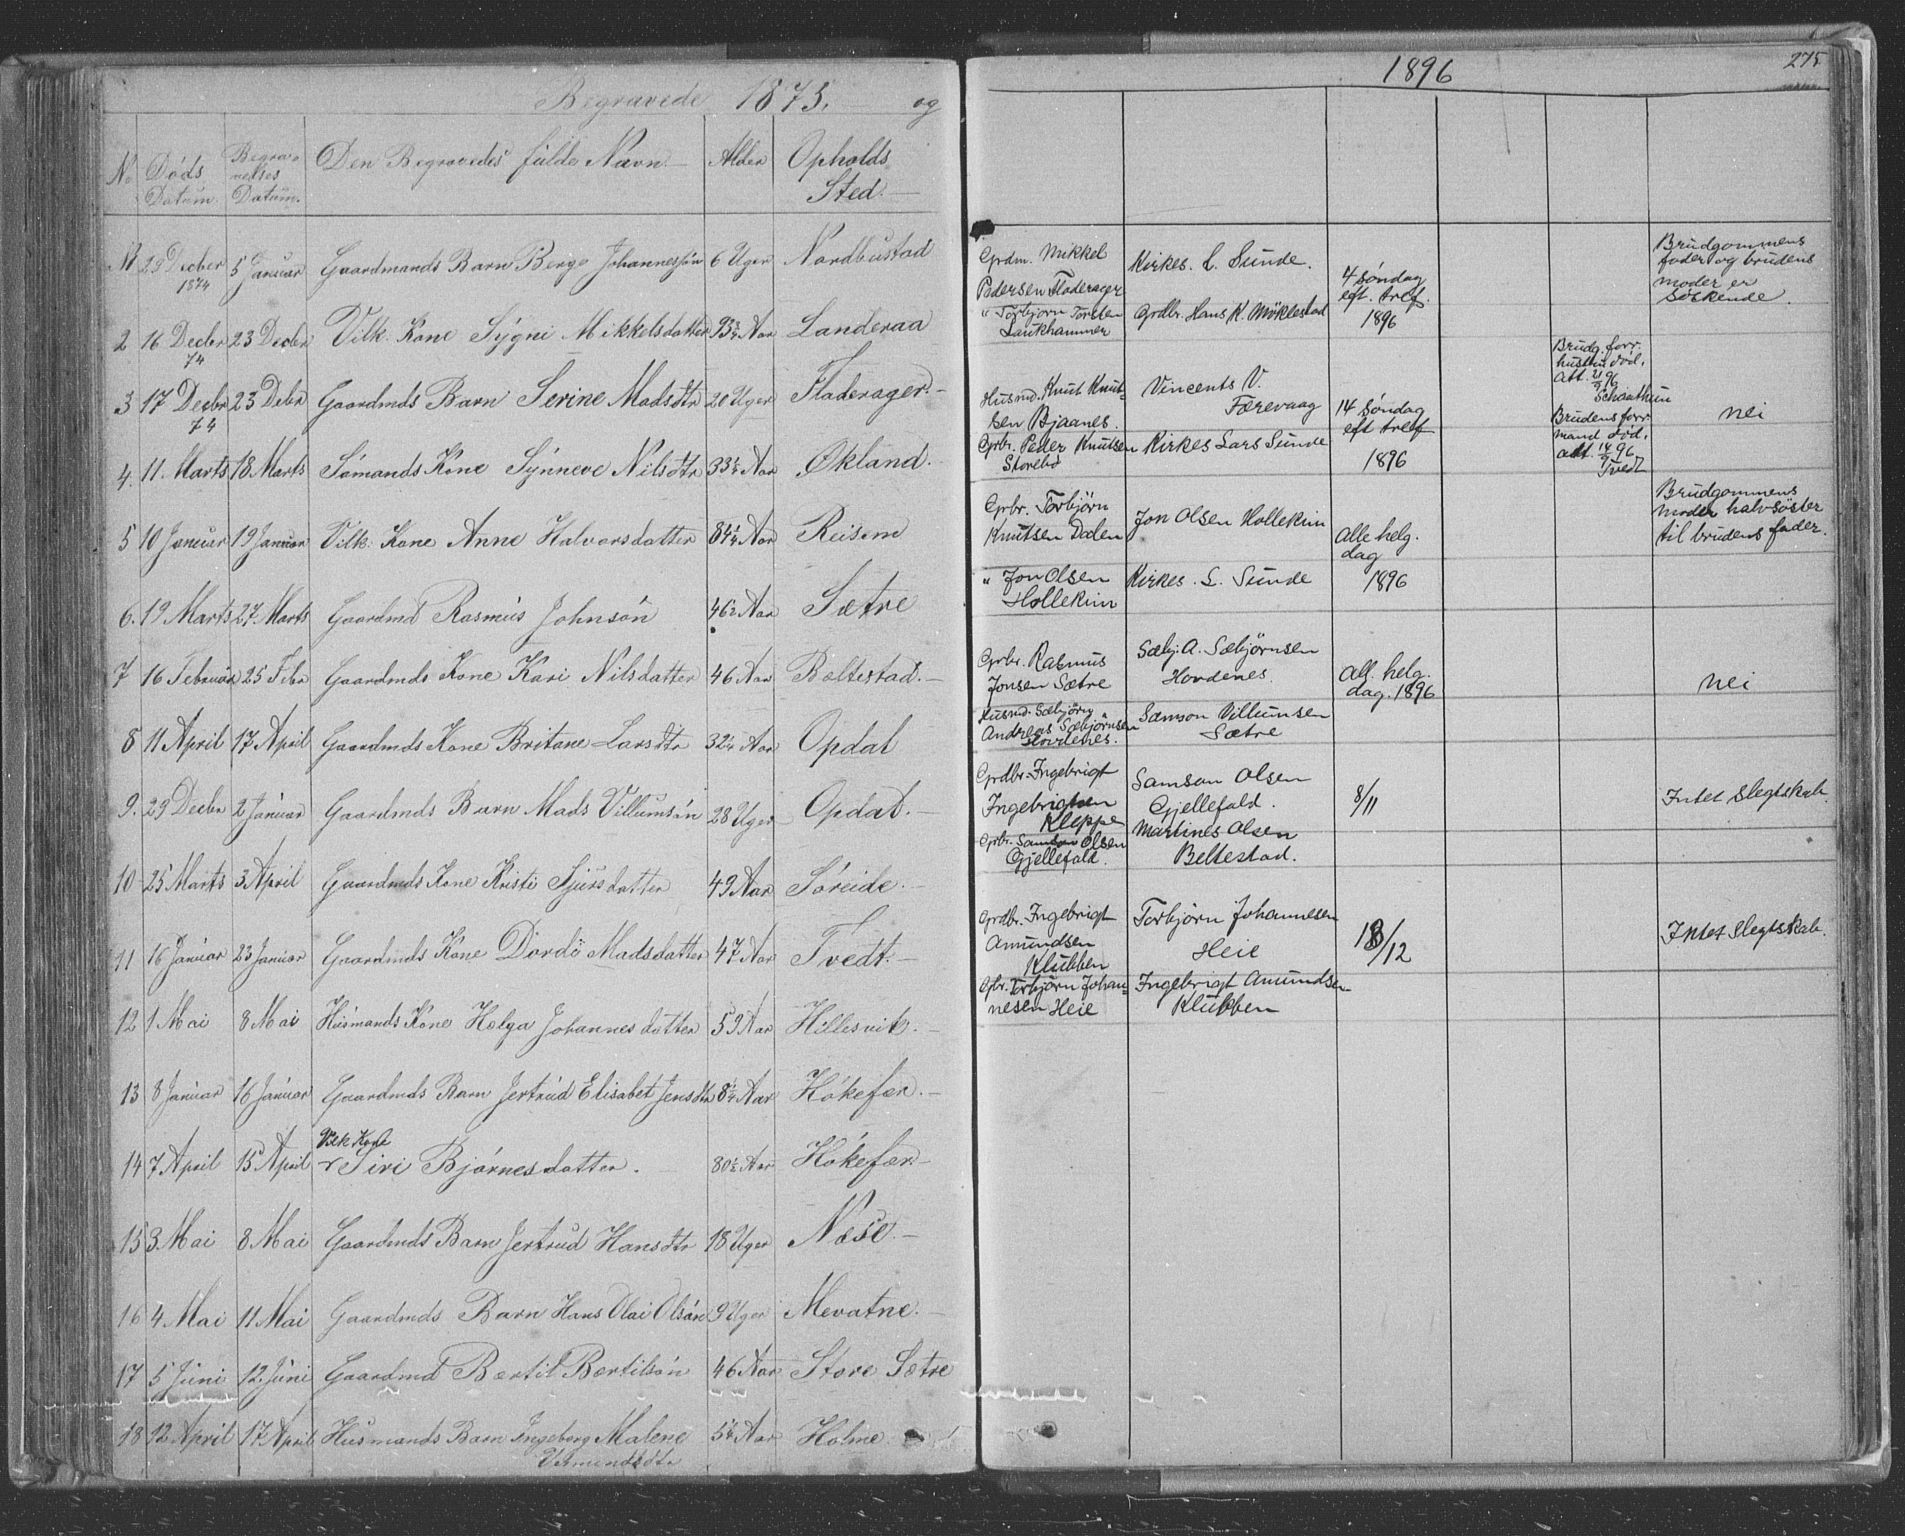 Begravede 1875. og
No Døds Datum Begravelses Datum. Den Begravedes fulde Navn Alder Opholds Sted.
29 Decber 1874 5 Januar Gaardmands Barn Berge Johannessøn 6 Uger Nordbustad
2 16 Decbr 74 23 Decbr Vilk. Kone Sygni Mikkelsdatter 93¾ Aar Landeraa
3 17 Decbr 74 23 Debr Gaardmds Barn Serine Madsdtr 20 Uger Fladerager.
4. 11. Marts 18. Marts Sømands Kone Synneve Nilsdtr 33½ Aar Økland.
5 10 Januar 19 Januar Vilk. Kone Anne Halvorsdatter 84¼ Aar Reisem
6. 19 Marts 27. Marts Gaardmd Rasmus Johnsøn 46½ Aar Sætre
7 16 Februar 25 Febr Gaardmds Kone Kari Nilsdatter 46 Aar Beltestad.
8 11 April 17 April Gaardmds Kone Britane Larsdtr 32¼ Aar Opdal
9. 29 Decbr 2 Januar Gaardmds Barn Mads Villumsøn 28 Uger Opdal.
10 25 Marts 3 April Gaardmds Kone Kristi Sjursdatter 49 Aar Søreide.
11 16 Januar 23 Januar Gaardmds Kone Dordi Madsdatter 47 Aar Tvedt.
12 1 Mai 8 Mai Husmands Kone Helga Johannesdatter 59 Aar Hillesvik.
13 8 Januar 16 Januar Gaardmds Barn Jertrud Elisabet Jensdtr 8½ Aar Høkefær.
Vilk Kone
14 7 April 15 April Siri Bjørnesdatter. 80½ Aar Høkefær.
15 3. Mai 8 Mai Gaardmds Barn Jertrud Hansdtr 18 Uger Næse.
16 4 Mai 11 Mai Gaardmds Barn Hans Olai Olsøn 9 Uger Mevatne.
17 5 Juni 12. Juni Gaardmd Bærtil Bærtilsøn 46 Aar Store Sætre
18 12 April 17 April Husmands Barn Ingeborg Malene 5¼ Aar Holme
Vermundsdtr
1896 275
Grdm. Mikkel
Pedersen Fladerager
Kirkes. L. Sunde.
4 Søndag
eft. tref.
1896
Brudgommens
fader og brudens
moder er
Søskende.
" Torbjørn Torsten
Laukhammer
Grdbr. Hans K. Møklestad
Husmd. Knut Knut-
sen Bjaanes.
Vincents V.
Færevaag
14 Søndag
eft tref
1896
Brudg. forr.
hustru død.
Att. 21/9 96
Schaathun
nei
Grbr. Peder Knutsen
Storebø
Kirkes Lars Sunde
Brudens forr
mand død.
att. 14/9 96
Tvedt
Grbr. Torbjørn
Knutsen Dalen
Jon Olsen Hollekim
Alle helg.
dag
1896
Brudgommens
moder halvsøster
til brudens fader.
" Jon Olsen
Hollekim
Kirkes. L. Sunde
Grbr. Rasmus
Jonsen Sætre
Sæbj. A. Sæbjørnsen
Hovdenes.
All. helg.
dag. 1896
nei
Husmd. Sæbjørn
Andreas Sæbjørnsen
Hovdenes.
Samson Villumsen
Sætre
Grdbr. Ingebrigt
Ingebrigtsen
Kleppe
Samson Olsen
Gjellefald.
8/11
Intet Slegtskab.
Grbr. Samson Olsen
Gjellefald.
Martines Olsen
Beltestad.
Grdbr. Ingebrigt
Amundsen
Klubben
Torbjørn Johannesen
Heie
13/12
Intet Slegtskab.
Gbr. Torbjørn Johan-
nesen Heie
Ingebrigt Amundsen
Klubben